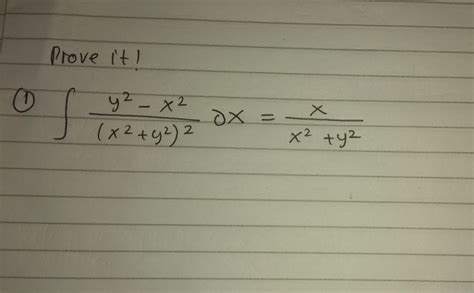 Prove it!
① ∫ y² - x² / (x² + y²)² ∂x = x / x² + y²